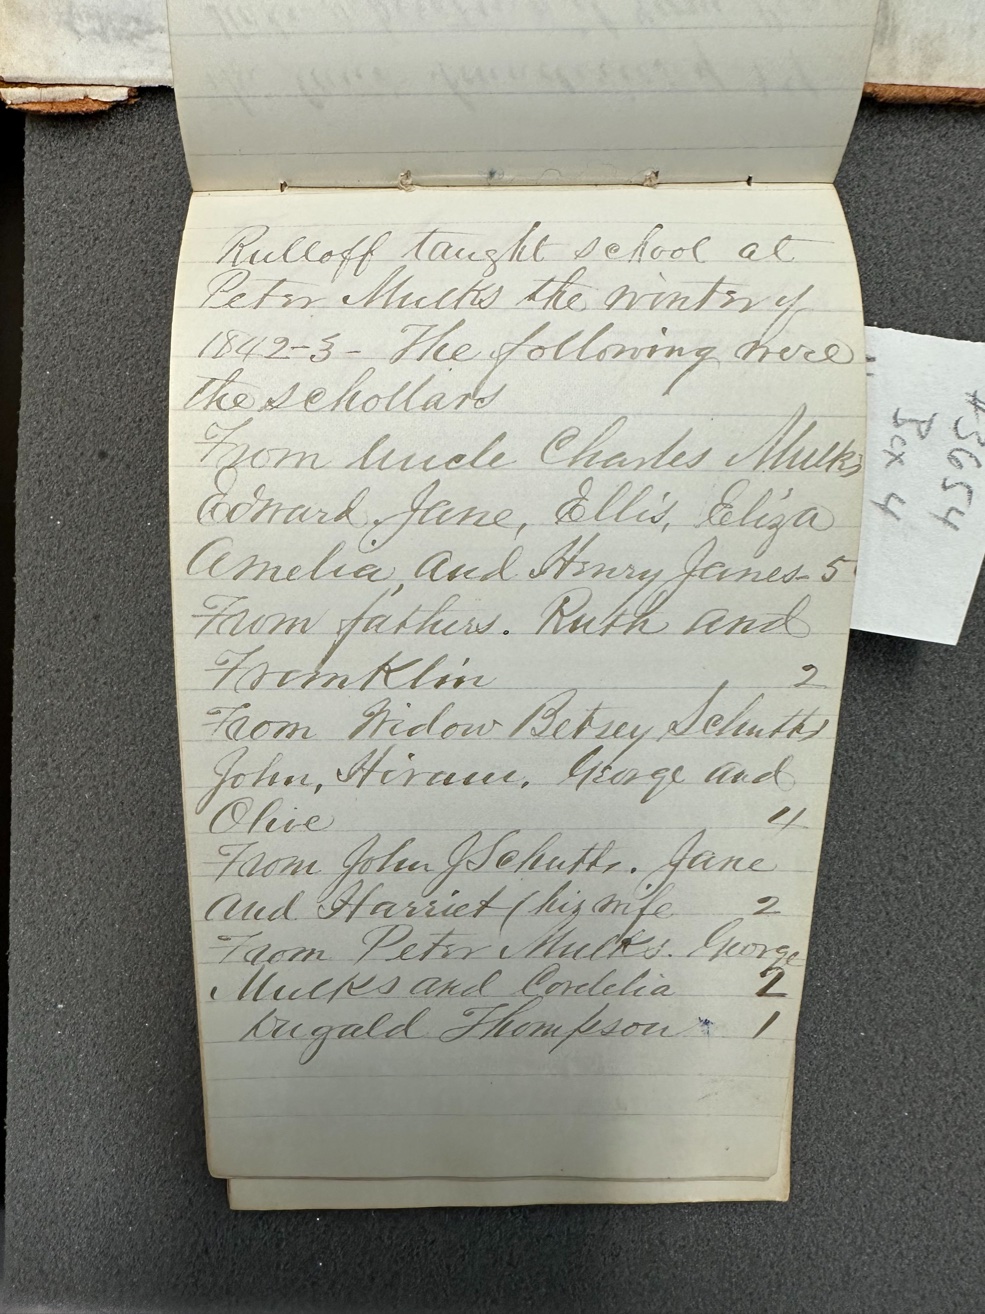 Rulloff taught school at
Peter Mulks the winter of
1842-3 - The following were
the schollars
From Uncle Charles Mulks
Edward, Jane, Ellis, Eliza
Amelia, and Henry Janes - 5
From fathers. Ruth and
Franklin 2
From Widow Betsey Schutts
John, Hiram, George and
Olive 4
From John J Schutts. Jane
and Harriet (his wife 2
From Peter Mulks. George
Mulks and Cordelia 2
Dugald Thompson * 1
#3654
Box 4